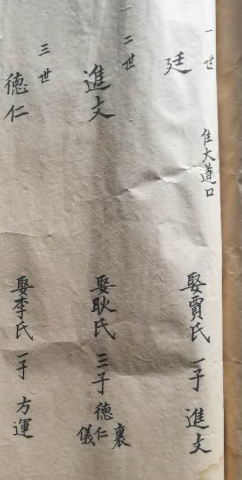 一世
廷
住大道口
娶賈氏 一子 進文
一二世
進文
娶耿氏 三子 德仁 儀 裏
三世
德仁
娶李氏 一子 方運